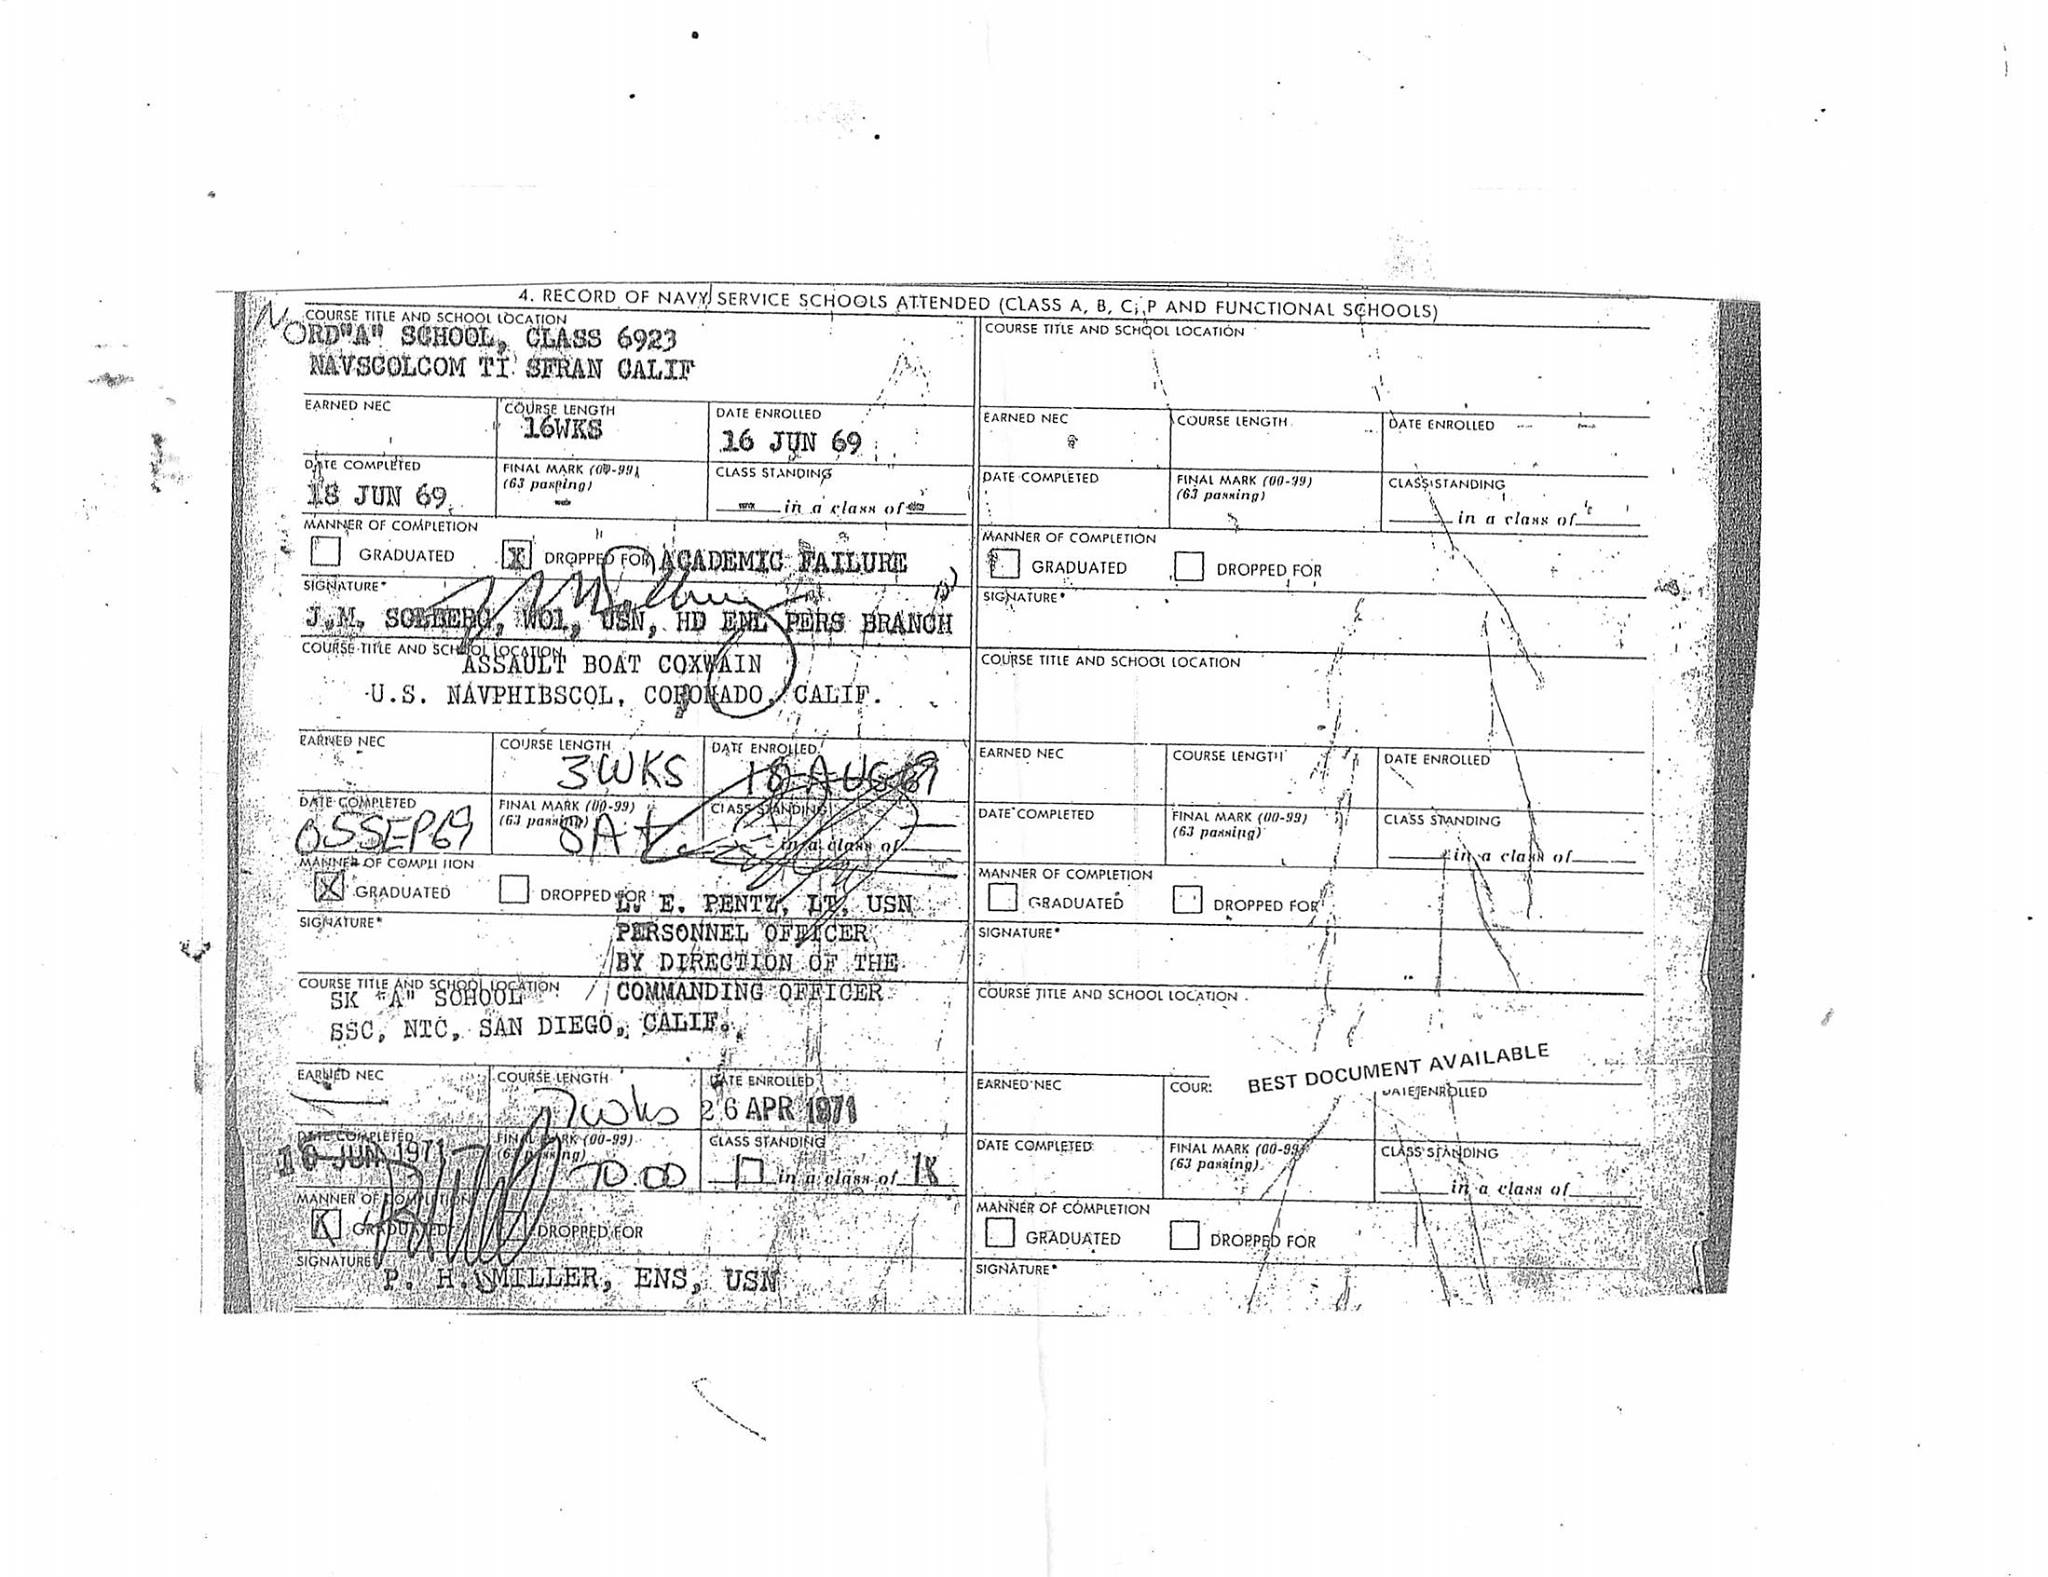 4. RECORD OF NAVY SERVICE SCHOOLS ATTENDED (CLASS A, B, C, P AND FUNCTIONAL SCHOOLS)
COURSE TITLE AND SCHOOL LOCATION
ORD"A" SCHOOL, CLASS 6923
NAVSCOLCOM TI SFRAN CALIF
EARNED NEC COURSE LENGTH DATE ENROLLED
16WKS 16 JUN 69
DATE COMPLETED FINAL MARK (00-99) CLASS STANDING
(63 passing)
18 JUN 69 - in a class of
MANNER OF COMPLETION
GRADUATED X DROPPED FOR ACADEMIC FAILURE
SIGNATURE*
J.M. SOLBERG, WO1, USN, HD ENL PERS BRANCH
COURSE TITLE AND SCHOOL LOCATION
ASSAULT BOAT COXWAIN
U.S. NAVPHIBSCOL, CORONADO, CALIF.
EARNED NEC COURSE LENGTH DATE ENROLLED
3WKS 18 AUG 69
DATE COMPLETED FINAL MARK (00-99) CLASS STANDING
(63 passing)
05SEP69 SAT in a class of
MANNER OF COMPLETION
X GRADUATED DROPPED FOR
L. E. PENTZ, LT, USN
SIGNATURE*
PERSONNEL OFFICER
BY DIRECTION OF THE
COMMANDING OFFICER
COURSE TITLE AND SCHOOL LOCATION
SK "A" SCHOOL
SSC, NTC, SAN DIEGO, CALIF.
EARNED NEC COURSE LENGTH DATE ENROLLED
7wks 26 APR 1971
DATE COMPLETED FINAL MARK (00-99) CLASS STANDING
(63 passing)
JUN 1971 70.00 17 in a class of 18
MANNER OF COMPLETION
X GRADUATED DROPPED FOR
SIGNATURE
P. H. MILLER, ENS, USN
COURSE TITLE AND SCHOOL LOCATION
EARNED NEC COURSE LENGTH DATE ENROLLED
DATE COMPLETED FINAL MARK (00-99) CLASS STANDING
(63 passing)
in a class of
MANNER OF COMPLETION
GRADUATED DROPPED FOR
SIGNATURE*
COURSE TITLE AND SCHOOL LOCATION
EARNED NEC COURSE LENGTH DATE ENROLLED
DATE COMPLETED FINAL MARK (00-99) CLASS STANDING
(63 passing)
in a class of
MANNER OF COMPLETION
GRADUATED DROPPED FOR
SIGNATURE*
COURSE TITLE AND SCHOOL LOCATION
BEST DOCUMENT AVAILABLE
EARNED NEC COUR: DATE ENROLLED
DATE COMPLETED FINAL MARK (00-99) CLASS STANDING
(63 passing)
in a class of
MANNER OF COMPLETION
GRADUATED DROPPED FOR
SIGNATURE*